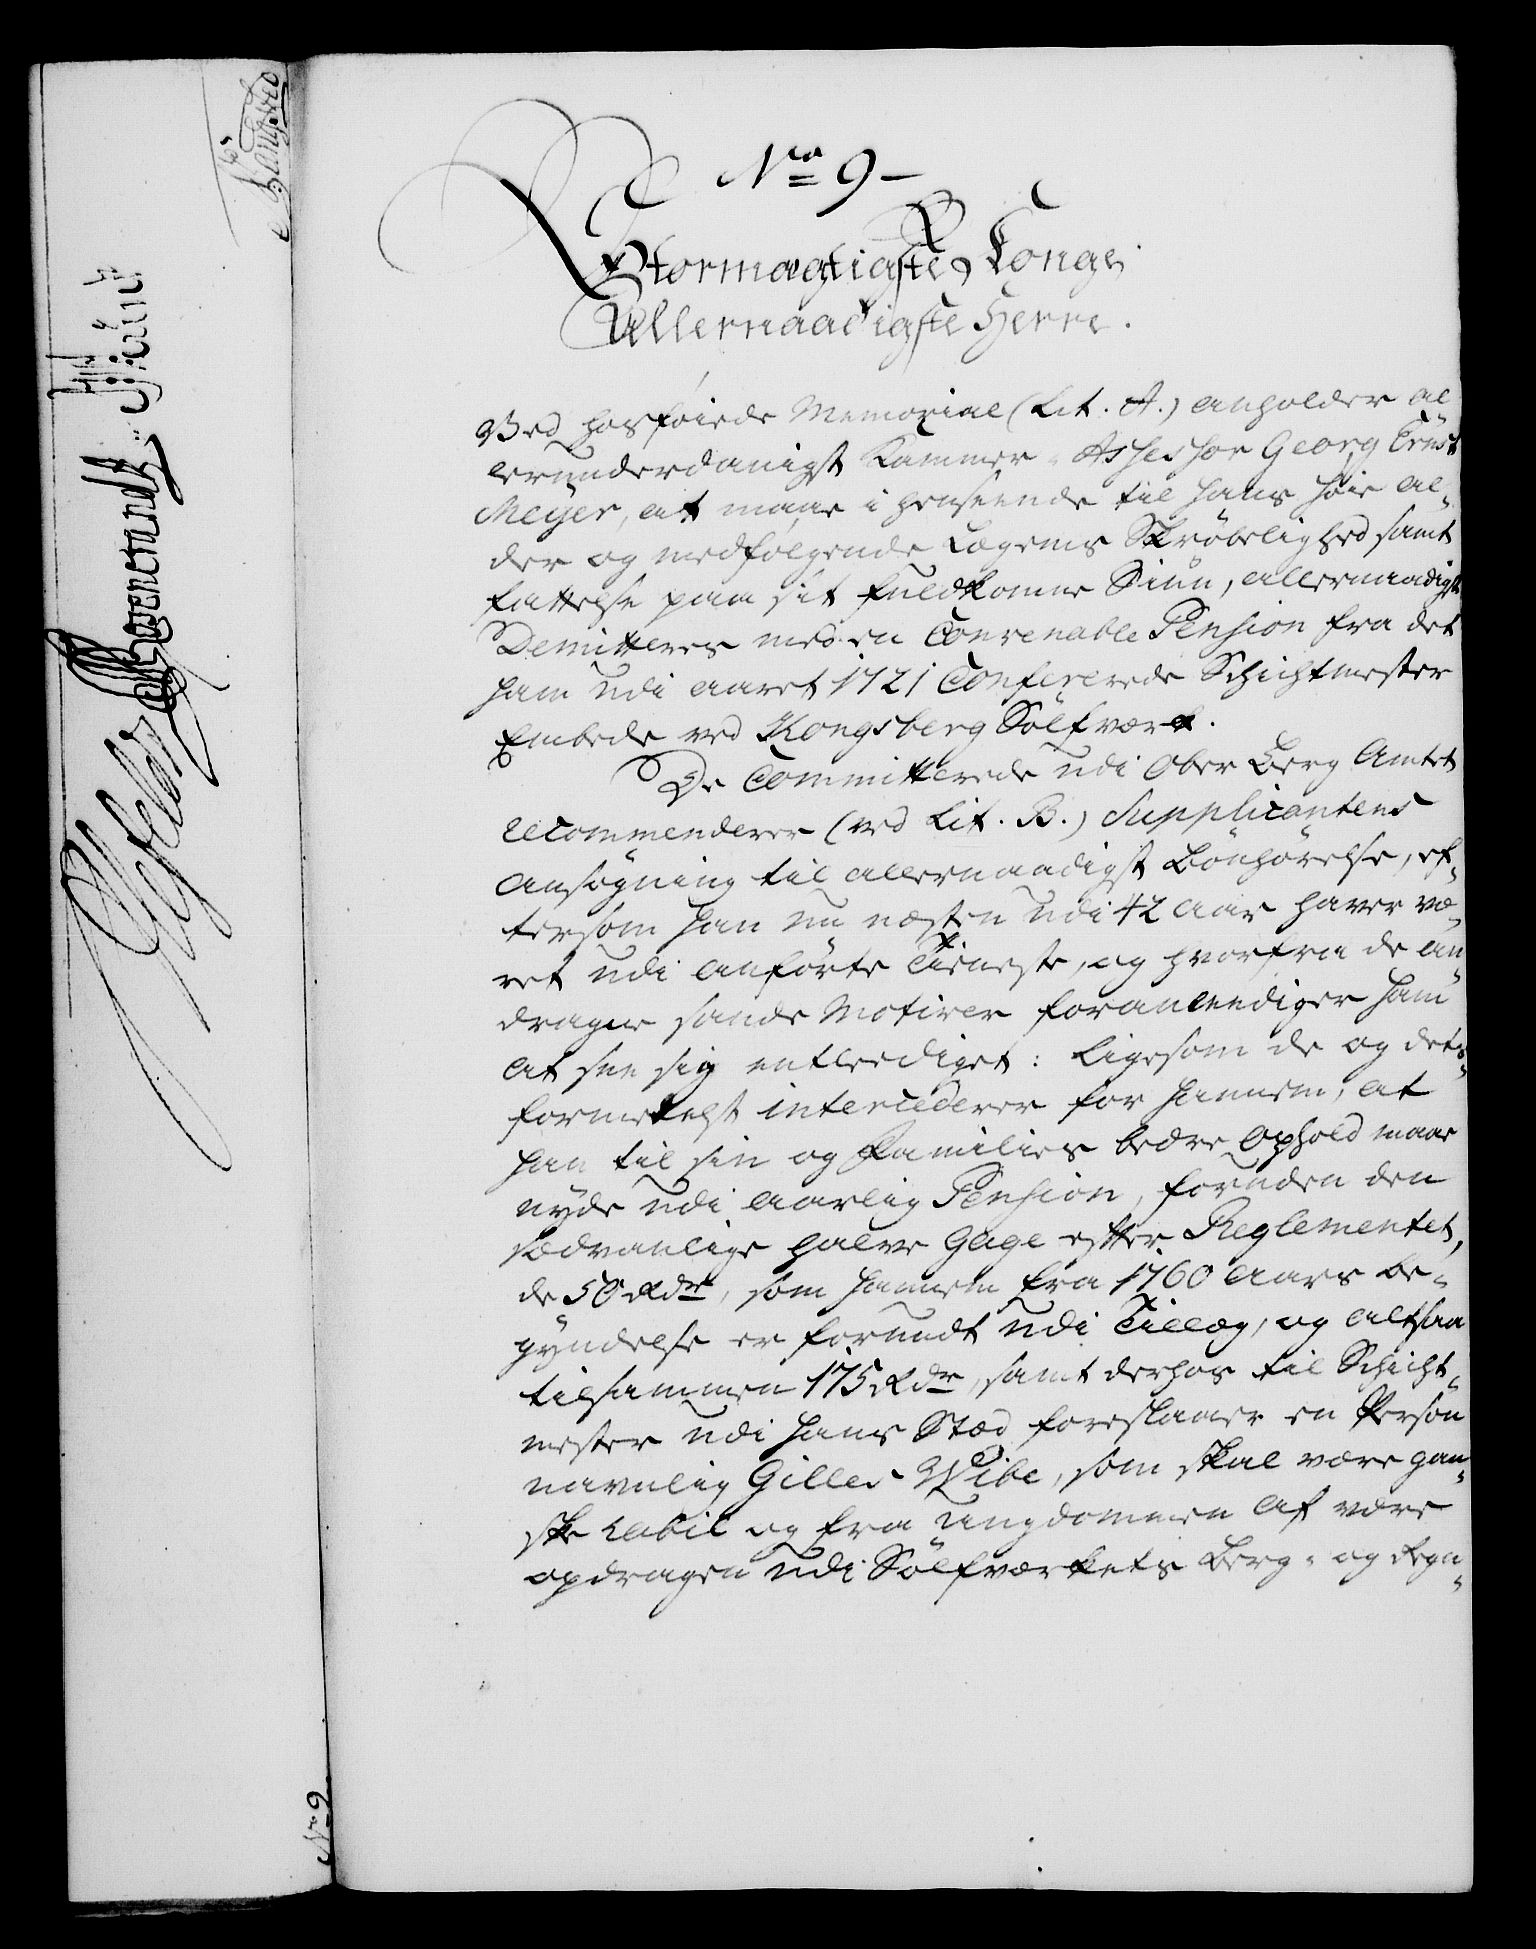 No 9
Stormægtigste Konge
Allernaadigste Herre.
Ved hosføiede Memorial (Lit. A.) anholder al„
lerunderdanigst Kammer-Assessor Georg Ernst
Meyer, at maae i henseende til hans høie al„
der og medfølgende Legems Skrøbelighed samt
fattelse paa sit fuldkomne Siun, allernaadigst
Demitteres med en Convenable Pension fra det
ham udi aaret 1721 Confererede Schichtmester
Embede ved Kongsberg Sølfværk.
De Committerede udi Ober Berg Amtet
recommenderer (ved Lit. B.) Supplicantens
ansøgning til allernaadigst Bønhørelse, ef„
tersom han nu næsten udi 42 aar haver væ„
ret udi anførte Tieneste, og hvorfra de an„
dragne sande Motiver foranlediger ham
at see sig entlediget: Ligesom de og des„
formedelst intercederer for hannem, at
han til sin og Families bedre Ophold maae
nyde udi aarlig Pension, foruden den
sædvanlige halve Gage efter Reglementet,
de 50 Rdr, som hannem fra 1760 Aars be„
gyndelse er forundt udi Tillæg, og altsaa
tilsammen 175 Rdr, samt derhos til Schicht„
mester udi hans Stæd foreslaaer en Person
navnlig Gilles Wibe, som skal være gan„
ske habil og fra Ungdommen af være
opdragen udi Sølfværkets Berg- og Regn„
No 9